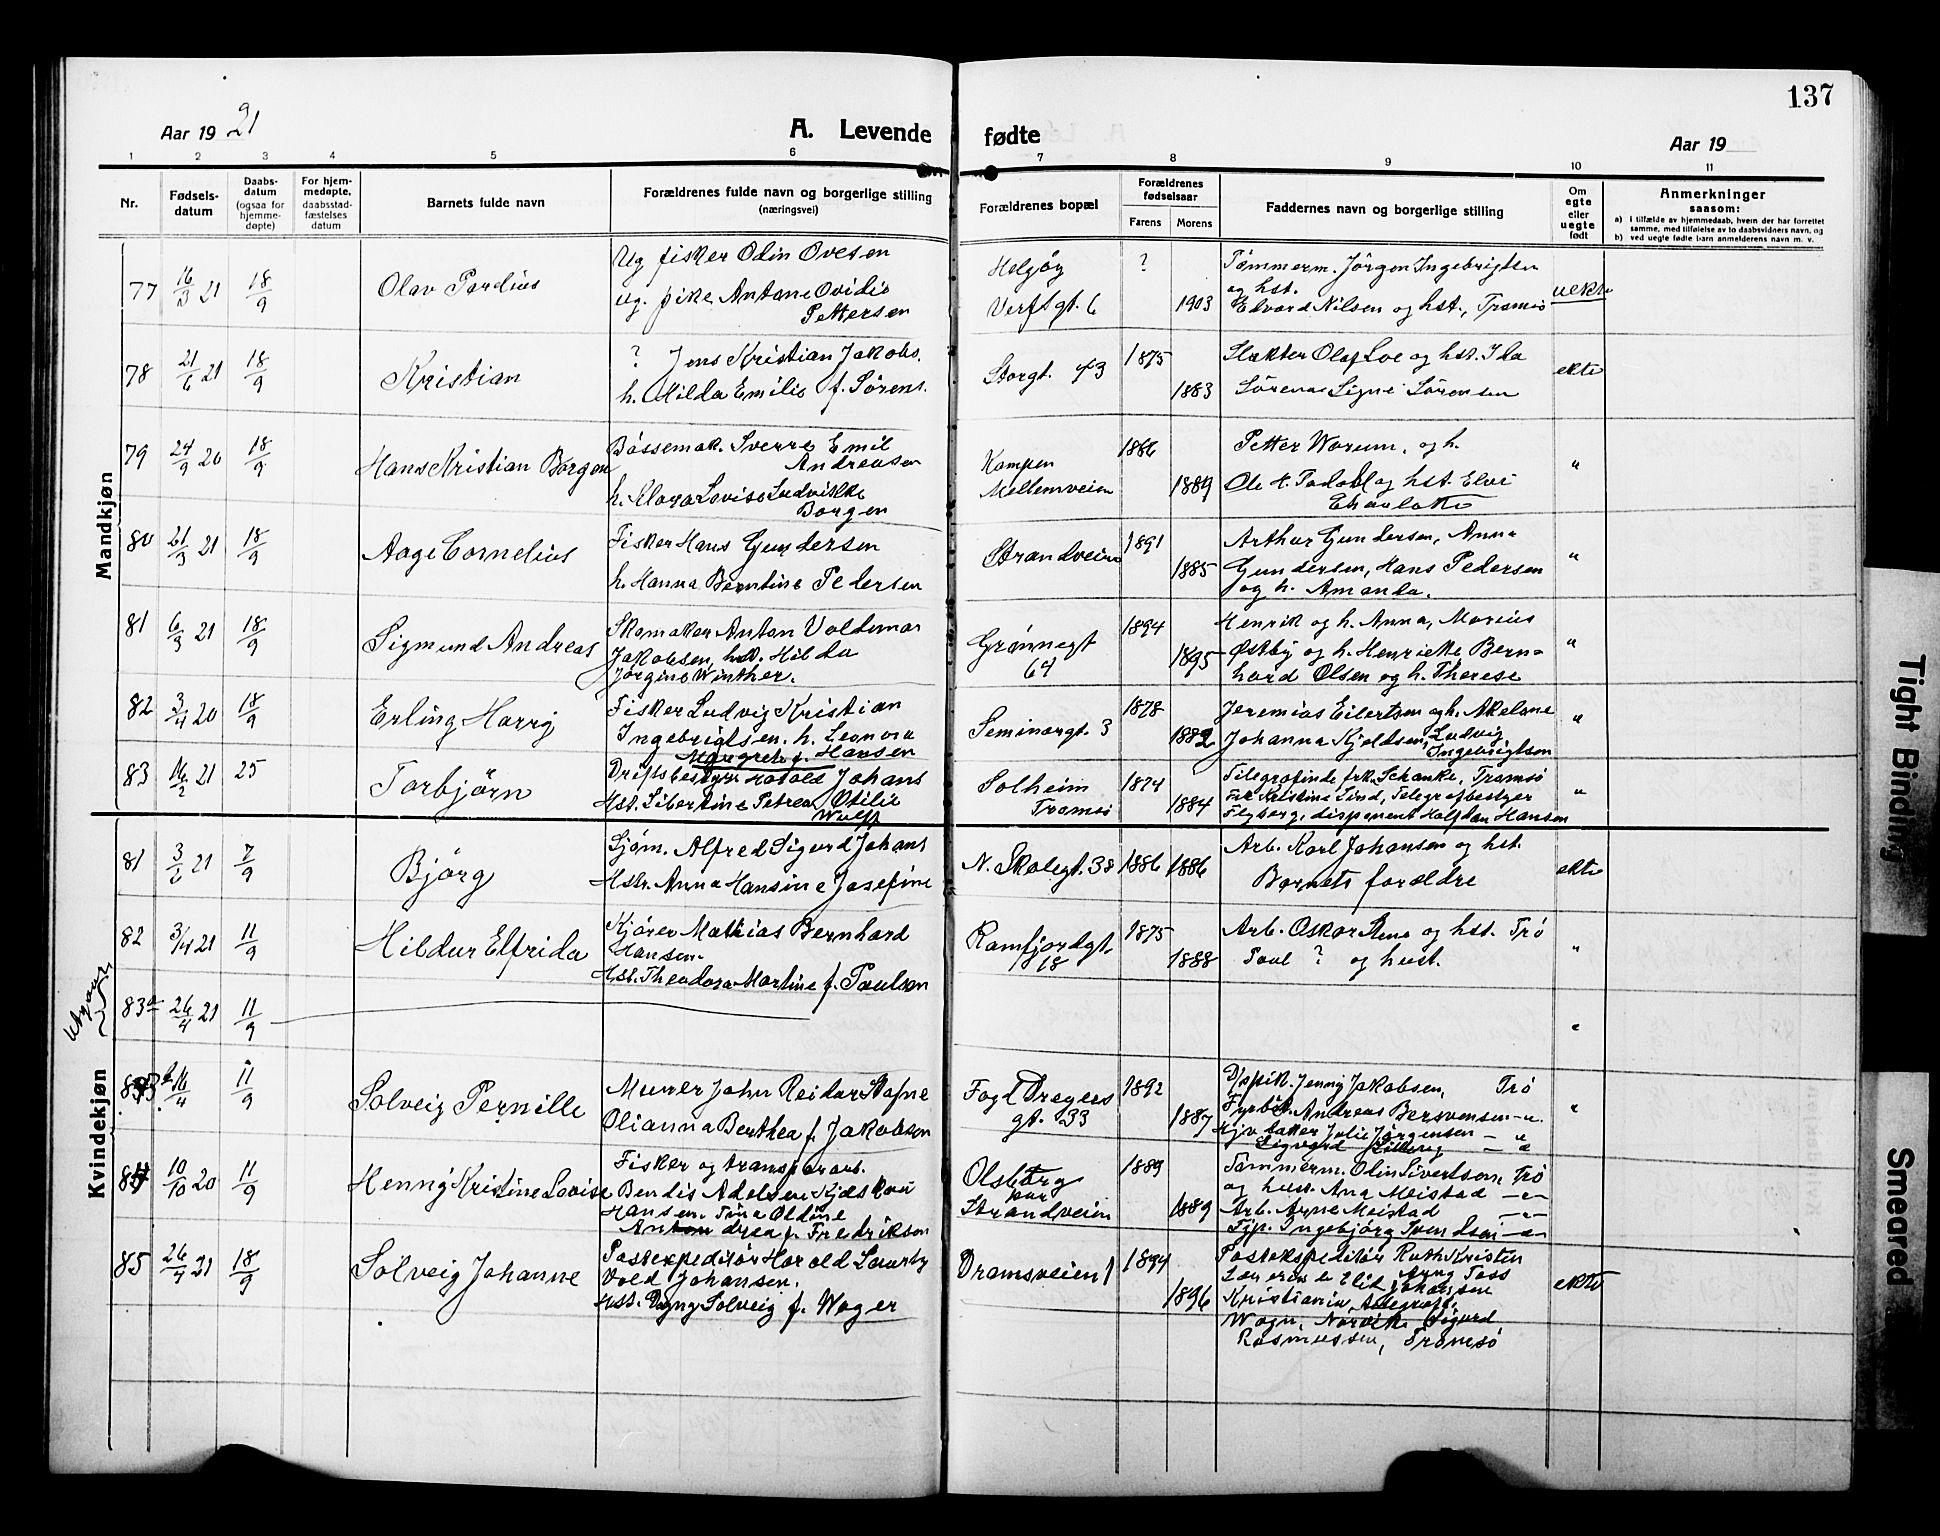 137
Aar 1921
A. Levende fødte
Aar 19
1 2 3 4 5 6 7 8 9 10 11
Nr.
Fødsels-
datum
Daabs-
datum
(ogsaa for
hjemme-
døpte)
For hjem-
medøpte,
daabsstad-
fæstelses
datum
Barnets fulde navn
Forældrenes fulde navn og borgerlige stilling
(næringsvei)
Forældrenes bopæl
Forældrenes
fødselsaar
Farens Morens
Faddernes navn og borgerlige stilling
Om
egte
eller
uegte
født
Anmerkninger
saasom:
a) i tilfælde av hjemmedaab, hvem der har forrettet
samme, med tilføielse av to daabsvidners navn, og
b) ved uegte fødte barn anmelderens navn m. v.
Mandkjøn
77 16/3 21 18/9 Olav Pardius
Ug fisker Odin Ovesen
ug. pike Antane Ovidie
Pettersen
Helgöy
Verftsgt. 6
? 1903
Tömmerm. Jörgen Ingebrigtsen
og hst.
Edvard Nilsen og hst., Tromsö
uekte
78 21/6 21 18/9 Kristian
? Jens Kristian Jakobs.
h. Hilda Emilie f. Sörens.
Storgt. 43
1875 1883
Slakter Olaf Loe og hst. Ida
Sörensen Signe Sörensen
ekte
79 24/9 20 18/9 Hans Kristian Borgen
Bössemak. Sverre Emil
Andreasen
h. Klara Lovise Ludvikke
Borgen
Kampen
Mellemveien
1886 1889
Petter Worum, og h.
Ole H. Todal og hst. Elvi
Charlotte
"
80 21/3 21 18/9 Aage Cornelius
Fisker Hans Gundersen
h. Hanna Berntine Pedersen
Strandveien
1891 1885
Arthur Gundersen, Anna
Gundersen, Hans Pedersen
og h. Amanda.
"
81 6/3 21 18/9 Sigmund Andreas
Skomaker Anton Voldemar
Jakobsen, hst. Hilda
Jörgine Winther.
Grønnegt
64
1894 1895
Henrik og h. Anna, Marius
Østby og h. Henriette Bern-
hard Olsen og h. Therese
"
82 3/4 20 18/9 Erling Harry
Fisker Ludvig Kristian
Ingebrigtsen. h. Leonora
Margrete f. Hansen
Seminargt. 3
1878 1882
Jeremias Eilertsen og h. Akelane
Johanna Kjeldsen, Ludvig
Ingebrigtsen
"
83 16/2 21 25 Torbjörn
Driftsbestyrer Harald Johans
Hst. Libertine Petrea Otilie
Wulff
Solheim
Tromsö
1874 1884
Telegrafinde frk. Schanke, Tromsö
Frk Kristine Lind, Telegrafbestyrer
Flyborg, disponent Halfdan Hansen
"
Kvindekjøn
81 3/6 21 7/9 Björg
Sjöm. Alfred Sigurd Johans
Hstr. Anna Hansine Josefine
N. Skolegt. 38
1886 1886
Arb. Karl Johansen og hst.
Barnets forældre
ekte
82 3/4 21 11/9 Hildur Elfrida
Kjörer Mathias Bernhard
Hansen
Hst. Theodora Martine f. Paulsen
Ramfjordgt.
18
1875 1888
Arb. Oskar Stene og hst. Trö
Paul ? og hust.
"
Utgaar
83a 26/4 21 11/9
"
83b 16/4 11/9 Solveig Pernille
Murer John Reidar Stafne
Olianna Berthea f. Jakobsen
Fogd Dreyers
gt. 33
1892 1887
Tj.pik. Jenny Jakobsen, Trö
Fyrböt. Andreas Bersvensen - " -
Hjv. bakker Julie Jörgensen - " -
"
84 10/10 20 11/9 Henny Kristine Lovise
Fisker og transporarb.
Bendis Adelsen Kjeskau
Hansen. Tina Oldine
Andrea f. Fredriksen
Olsborg
Strandveien
1889 1889
Tømmerm. Olin Sivertsen, Trö
og hust. Ana Meistad - " -
Arb. Arne Meistad - " -
Tjp. Ingebjörg Svendsen - " -
85 26/4 21 18/9 Solveig Johanne
Postexpeditör Harald Lauritz
Vold Johansen.
Hst. Dagny Solveig f. Wager
Dramsveien 1
1894 1896
Postekspeditör Ruth Kristen
Johansen
Kristiania, Telegraf.
Narvik Sigurd
Rasmussen, Tromsö
ekte
Tight Binding
Smeared